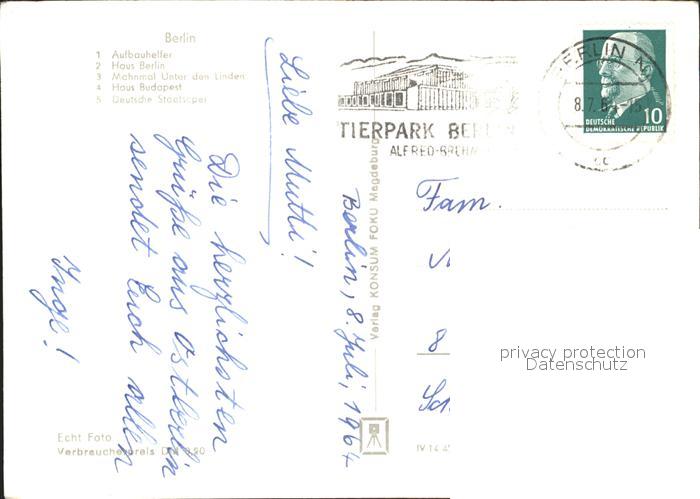 Berlin
1 Aufbauhelfer
2 Haus Berlin
3 Mahnmal Unter den Linden
4 Haus Budapest
5 Deutsche Staatsoper
Liebe Mutti!
Die herzlichsten
Grüße aus Ostberlin
sendet Euch allen
Inge!
Berlin, 8. Juli, 1964
Echt Foto
Verbraucherpreis DM
Verlag KONSUM FOKU Magdeburg
TIERPARK BERLIN
ALFRED-BREHM
BERLIN
8.7.64-15
10
DEUTSCHE
DEMOKRATISCHE REPUBLIK
Fam.
8
privacy protection
Datenschutz
IV-14-4